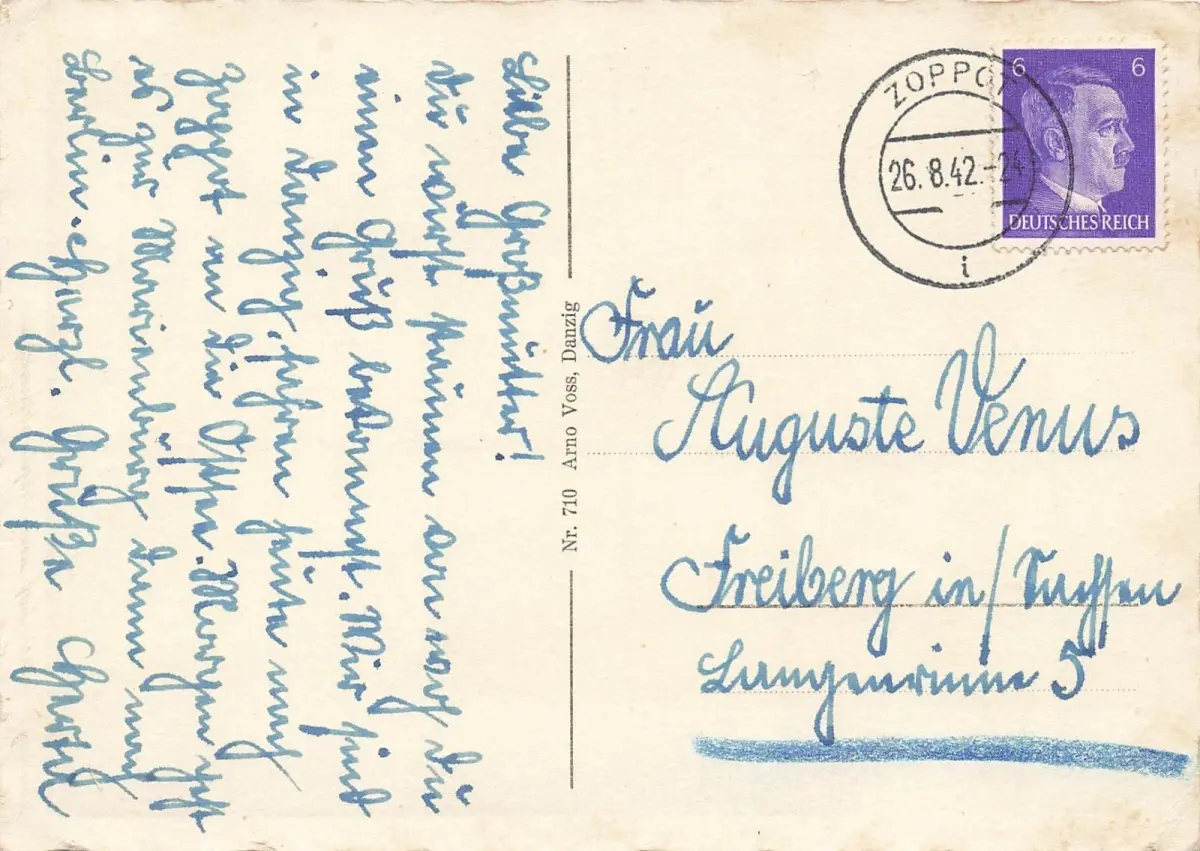 Liebe Großmutter!
Du wirst staunen von wo Du
einen Gruß bekommst. Wir sind
in Danzig, fahren heute nach
Zoppot an die Ostsee. Morgen geht
es zur Marienburg dann nach
Berlin. Herzl. Grüße
Nr. 710 Arno Voss, Danzig
ZOPPOT
26.8.42.-24
i
6 6
DEUTSCHES REICH
Frau
Auguste Venus
Freiberg in/Sachsen
Langenrinne 5